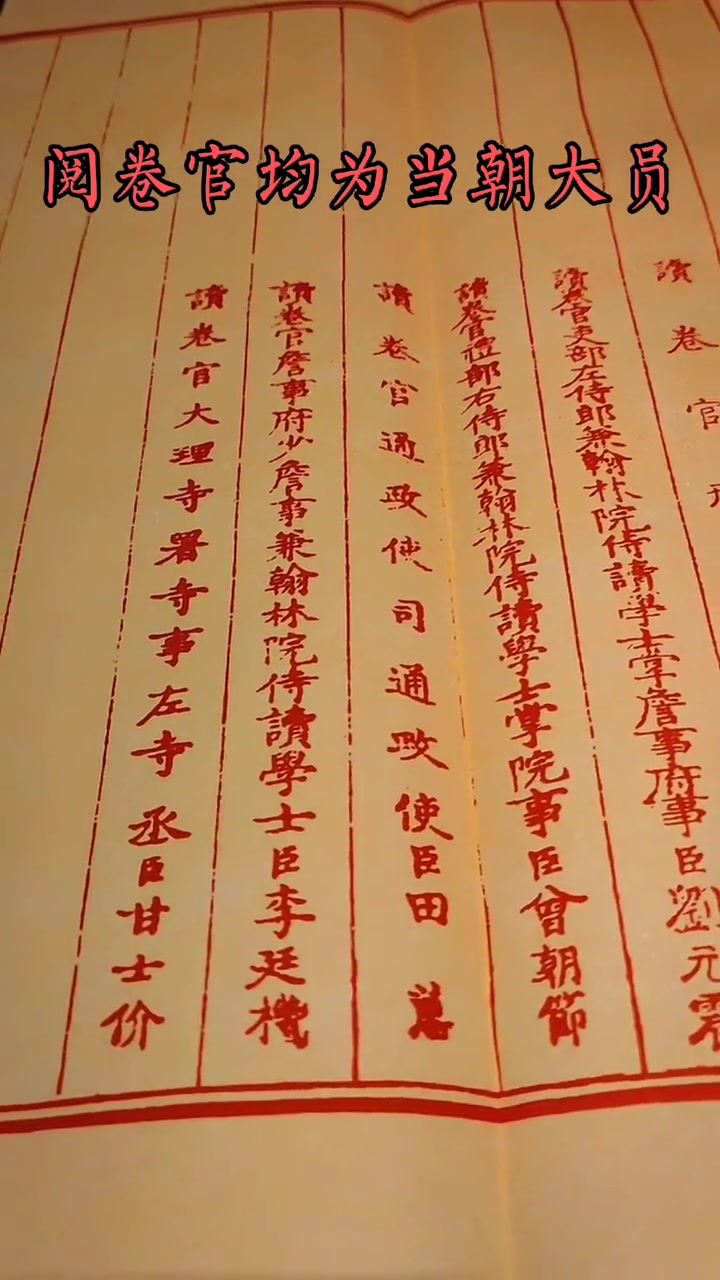 阅卷官均为当朝大员
讀卷官
讀卷官吏部左侍郎兼翰林院侍讀學士掌詹事府事臣劉元震
讀卷官禮部右侍郎兼翰林院侍讀學士掌院事臣曾朝節
讀卷官通政使司通政使臣田
讀卷官詹事府少詹事兼翰林院侍讀學士臣李廷機
讀卷官大理寺署寺事左寺丞臣甘士价